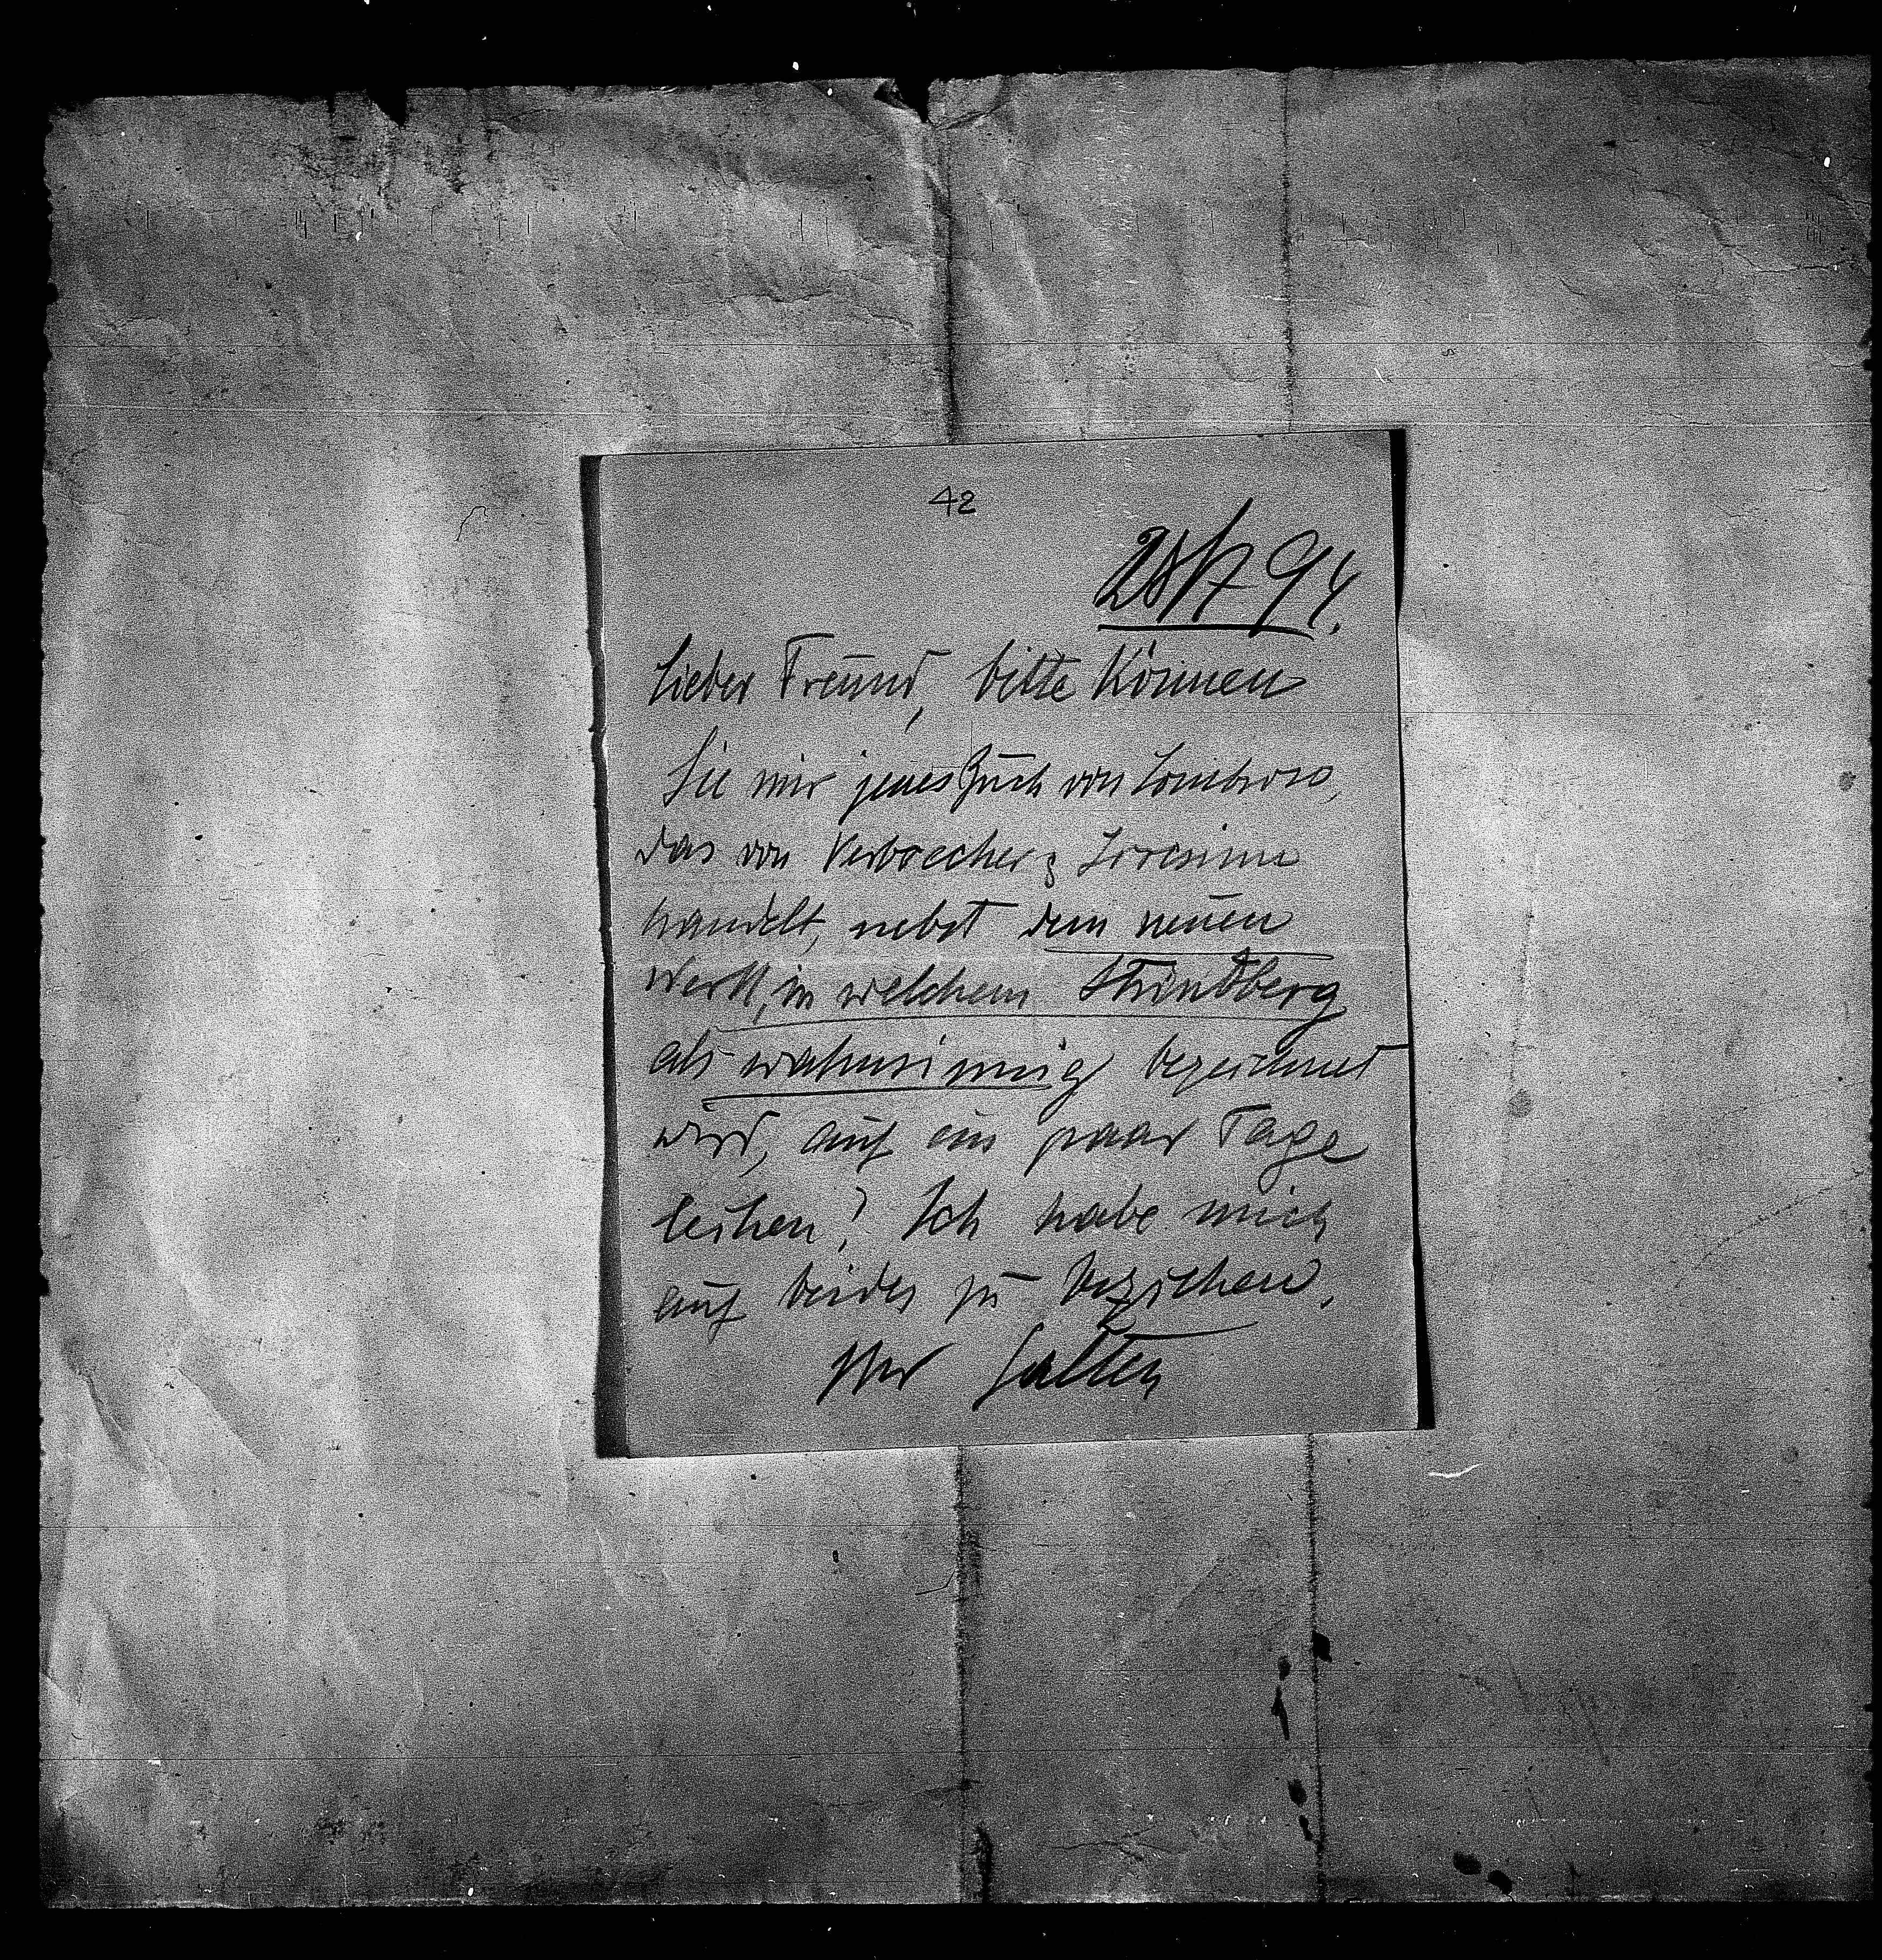 42
28/7 94.
Lieber Freund, bitte können
Sie mir jenes Buch von Lombroso,
das von Verbrecher & Irrsinn
handelt, nebst dem neuen
Werk, in welchem Strindberg
als wahnsinnig bezeichnet
wird, auf ein paar Tage
leihen? Ich habe mich
auf beides zu beziehen.
Ihr Salten